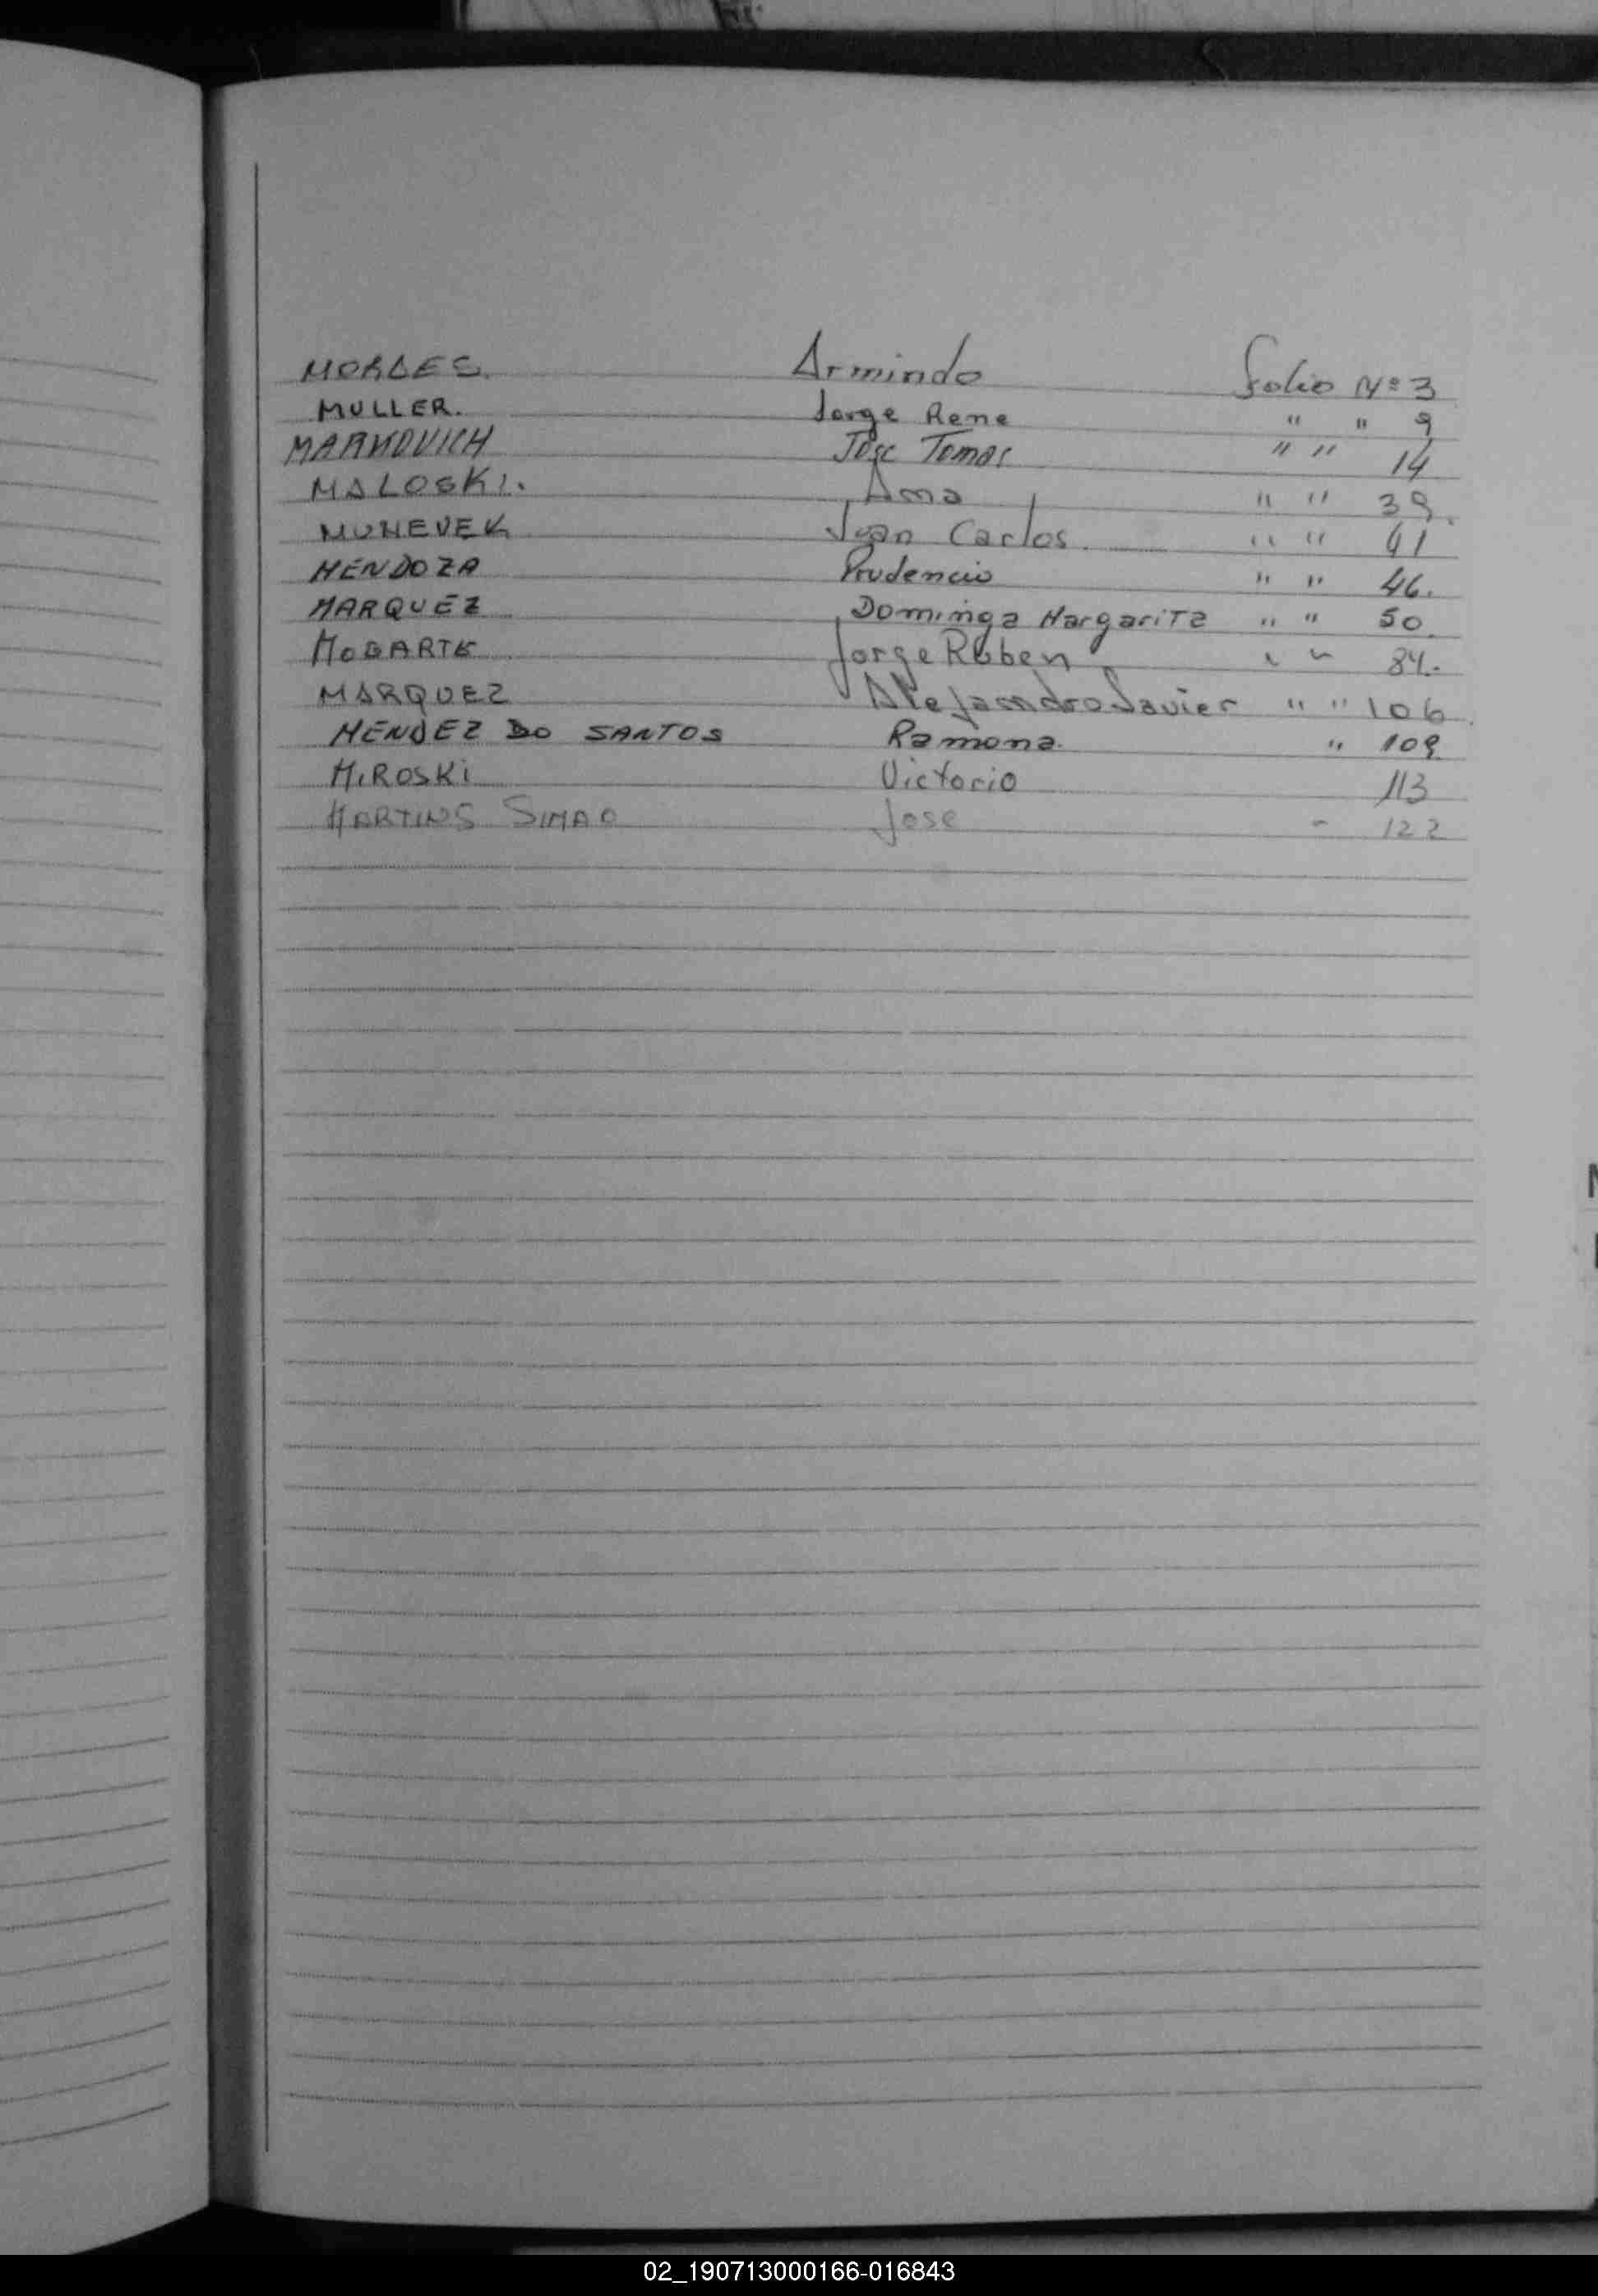 MORAES. Armindo Folio Nº 3
MULLER. Jorge Rene " " 9
MARKOVICH Jose Tomas " " 14
MALOSKI. Ana " " 39.
MUNEVEK Juan Carlos " " 41
MENDOZA Prudencio " " 46.
MARQUEZ Dominga Margarita " " 50
MOGARTE Jorge Ruben " " 84.
MARQUEZ Alejandro Javier " " 106
MENDEZ DO SANTOS Ramona " 109
MIROSKI Victorio 113
MARTINS SIMAO Jose " 122
02_190713000166-016843